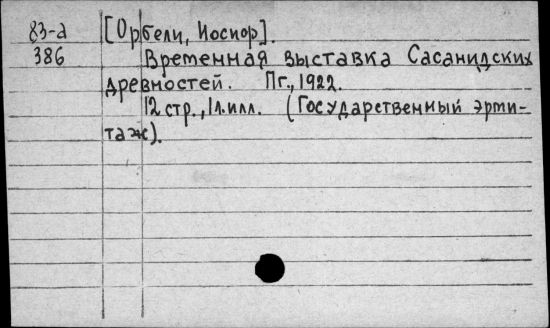 83-д [Орбели, Иосиор].
386 Временная выставка Сасанидских
древностей. Пг., 1922.
12 стр., 1л.илл. (Государственный эрми-
таж).